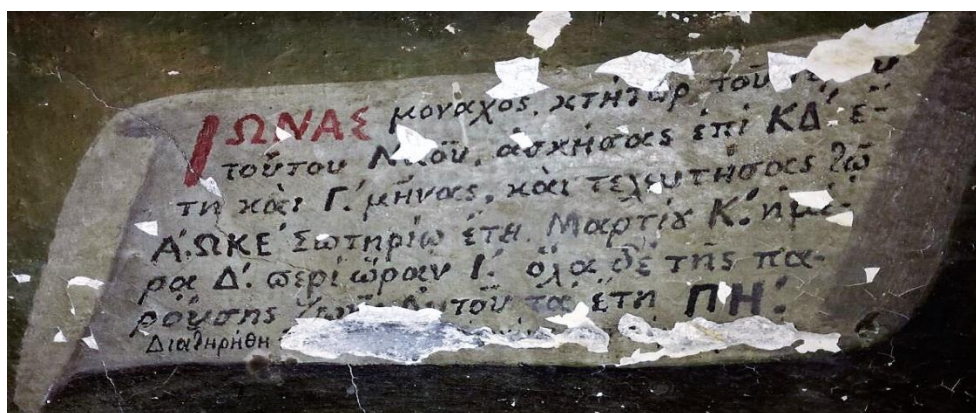 ΙΩΝΑΣ μοναχὸς, κτήτωρ τοῦ
τοῦτου Ναοῦ, ἀσκήσας ἐπὶ ΚΔ' ἔ-
τη καὶ Γ'. μῆνας, καὶ τελευτήσας τῷ
Α'.ΩΚΕ' Σωτηρίῳ ἔτη. Μαρτίου Κ'. ἡμέ-
ρα Δ'. περὶ ὥραν Ι'. ὅλα δὲ τῆς πα-
ρούσης ζωῆς αὐτοῦ τὰ ἔτη ΠΗ'.
Διατηρήθη